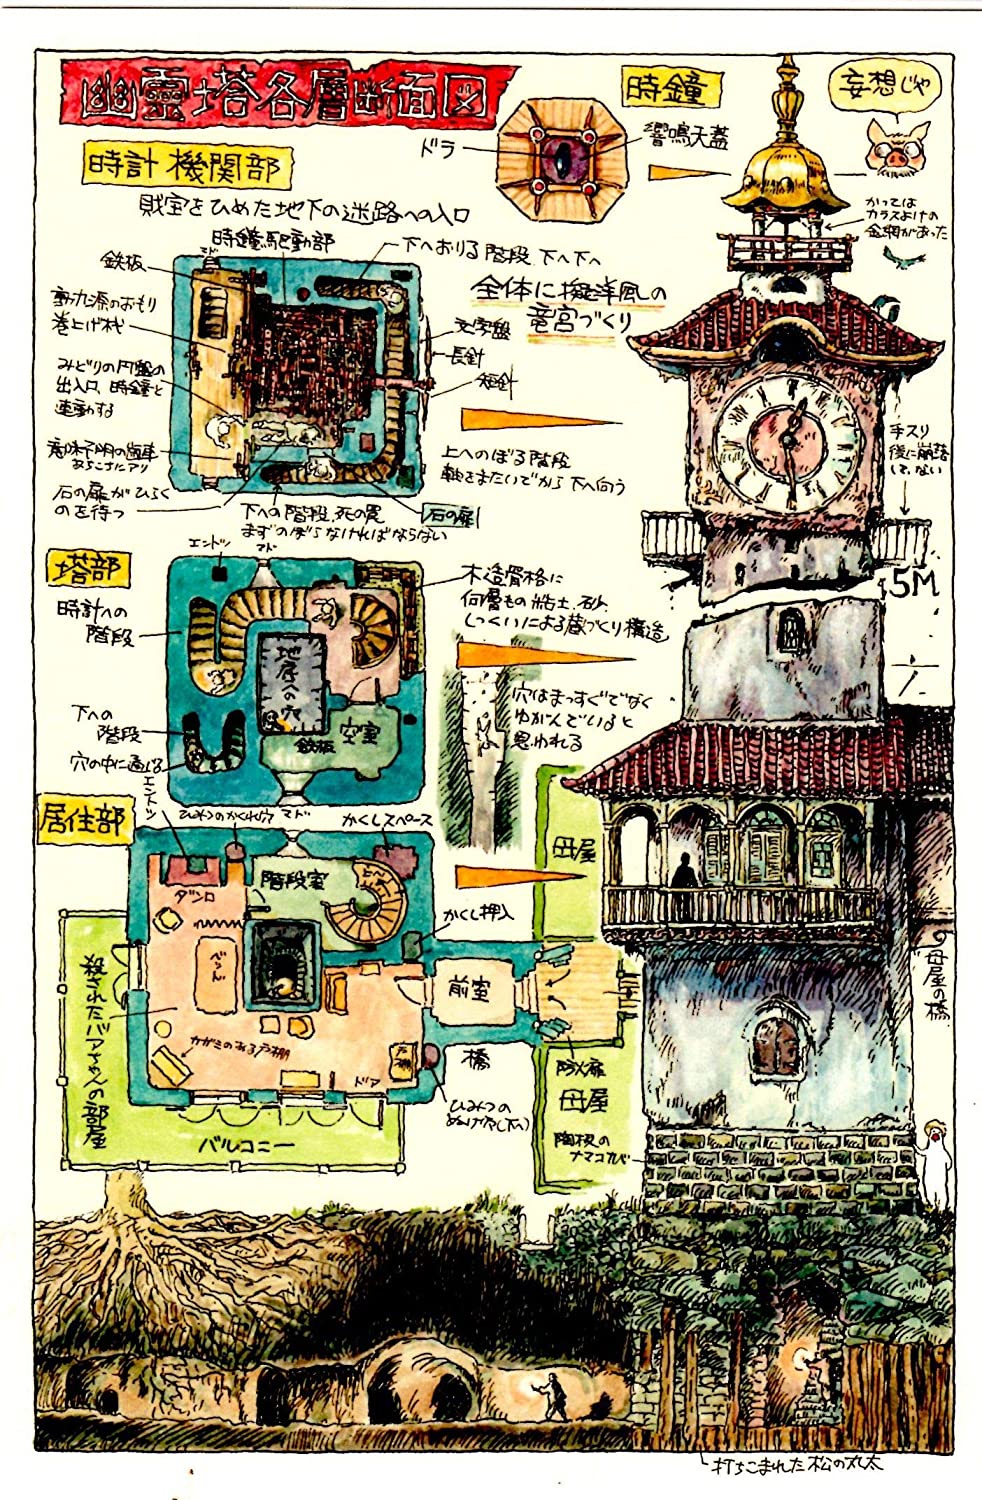 幽霊塔各層断面図
時鐘
妄想じゃ
ドラ
響鳴天蓋
時計機関部
財宝をひめた地下の迷路への入口
かつては
カラスよけの
金網があった
時鐘駆動部
マド
下へおりる階段 下へ下へ
鉄板
全体に擬洋風の
竜宮づくり
動力源のおもり
巻上げ機
文字盤
長針
短針
みどりの円盤の
出入口、時鐘と
連動する
手スリ
後に崩落
して、ない
意味不明の歯車
あちこちにアリ
上へのぼる階段
軸をまたいでから下へ向う
石の扉がひらく
のを待つ
下への階段、死の罠
まずのぼらなければならない
石の扉
エンドツ
マド
塔部
木造骨格に
何層もの粘土、砂、
しっくいによる蔵づくり構造
5M
時計への
階段
地底への穴
穴はまっすぐでなく
ゆがんでいると
思われる
下への
階段
穴の中に通じる
鉄板
空室
エントツ
居住部
ひみつのかくれ穴
マド
かくしスペース
母屋
階段室
ダンロ
かくし押入
べっど
前室
殺されたバアちゃんの部屋
母屋の橋
かがみのある戸棚
戸棚
橋
防火扉
ドア
母屋
ひみつの
ぬけ穴(下へ)
バルコニー
陶板の
ナマコカベ
打ちこまれた松の丸太